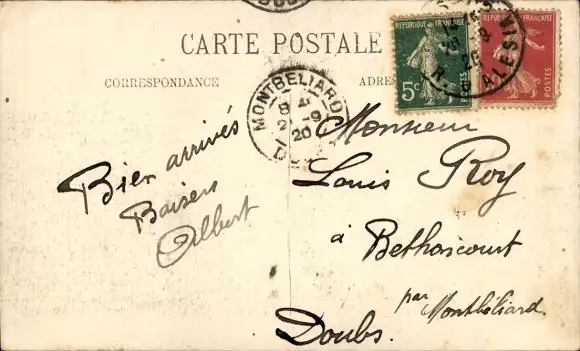 CARTE POSTALE
CORRESPONDANCE
REPUBLIQUE FRANÇAISE
5c
POSTES
REPUBLIQUE FRANÇAISE
POSTES
MONTBELIARD
8
2 -9
20
Bien arrivés
Baisers
Albert
Monsieur
Louis Roy
à Bethoncourt
par Montbéliard.
Doubs.